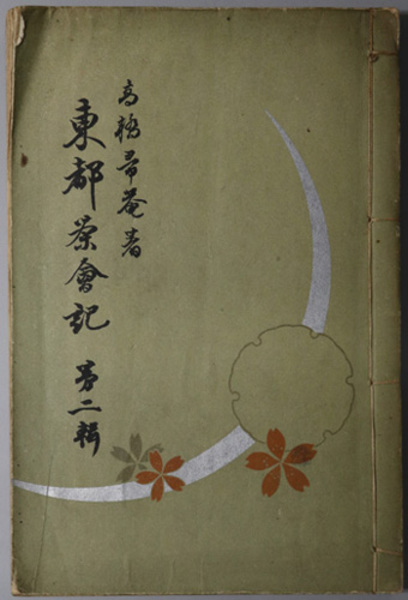 高橋箒菴著
東都茶會記 第二輯